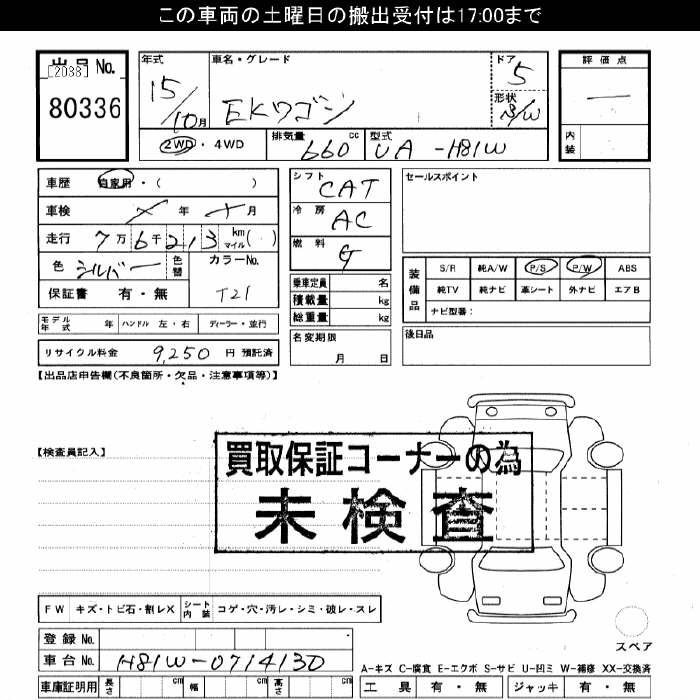 この車両の土曜日の搬出受付は17:00まで
出品 No.
[2088]
80336
年式
15/10月
車名・グレード
EKワゴン
ドア
5
形状
S/W
評価点
—
内装
2WD・4WD
排気量 660 cc
型式 UA-H81W
車歴 自家用・( )
車検 年 月
走行 7万6千213 km マイル( )
色 シルバー 色替
カラーNo. T21
保証書 有・無
シフト CAT
冷房 AC
燃料 G
乗車定員 名
積載量 kg
総重量 kg
セールスポイント
装備品
S/R 純A/W P/S P/W ABS
純TV 純ナビ 革シート 外ナビ エアB
ナビ型番:
モデル年式 年 ハンドル 左・右 ディーラー・並行
名変期限 月 日
後日品
リサイクル料金 9,250 円 預託済
【出品店申告欄(不良箇所・欠品・注意事項等)】
【検査員記入】
買取保証コーナーの為
未検査
FW キズ・トビ石・割レX シート内装 コゲ・穴・汚レ・シミ・破レ・スレ
スペア
登録 No.
車台 No. H81W-0714130
車庫証明用 長さ cm 幅 cm 高さ cm
A-キズ C-腐食 E-エクボ S-サビ U-凹ミ W-補修 XX-交換済
工具 有・無 ジャッキ 有・無